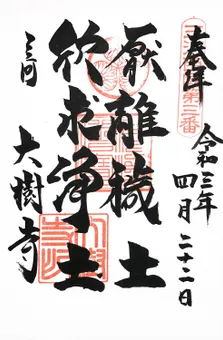 奉拝
令和三年
四月二十二日
厭離穢土
欣求浄土
三河
大樹寺